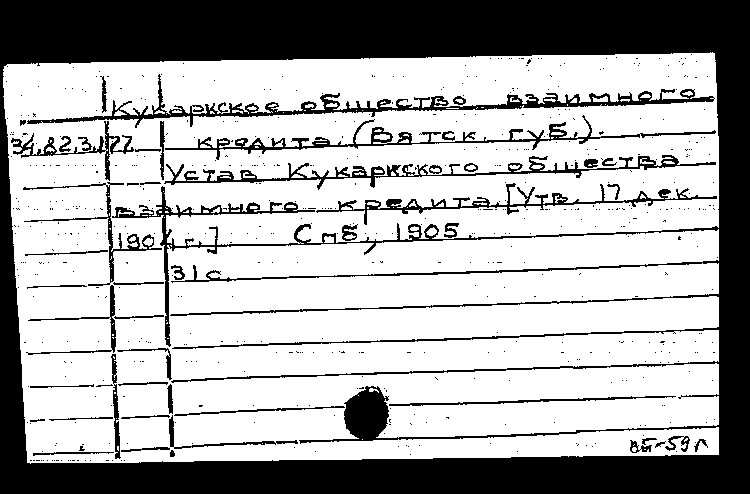 Кукаркское общество взаимного
34.82.3.177 кредита. (Вятск. губ.).
Устав Кукаркского общества
взаимного кредита. [Утв. 17 дек.
1904 г.] Спб., 1905.
31 с.